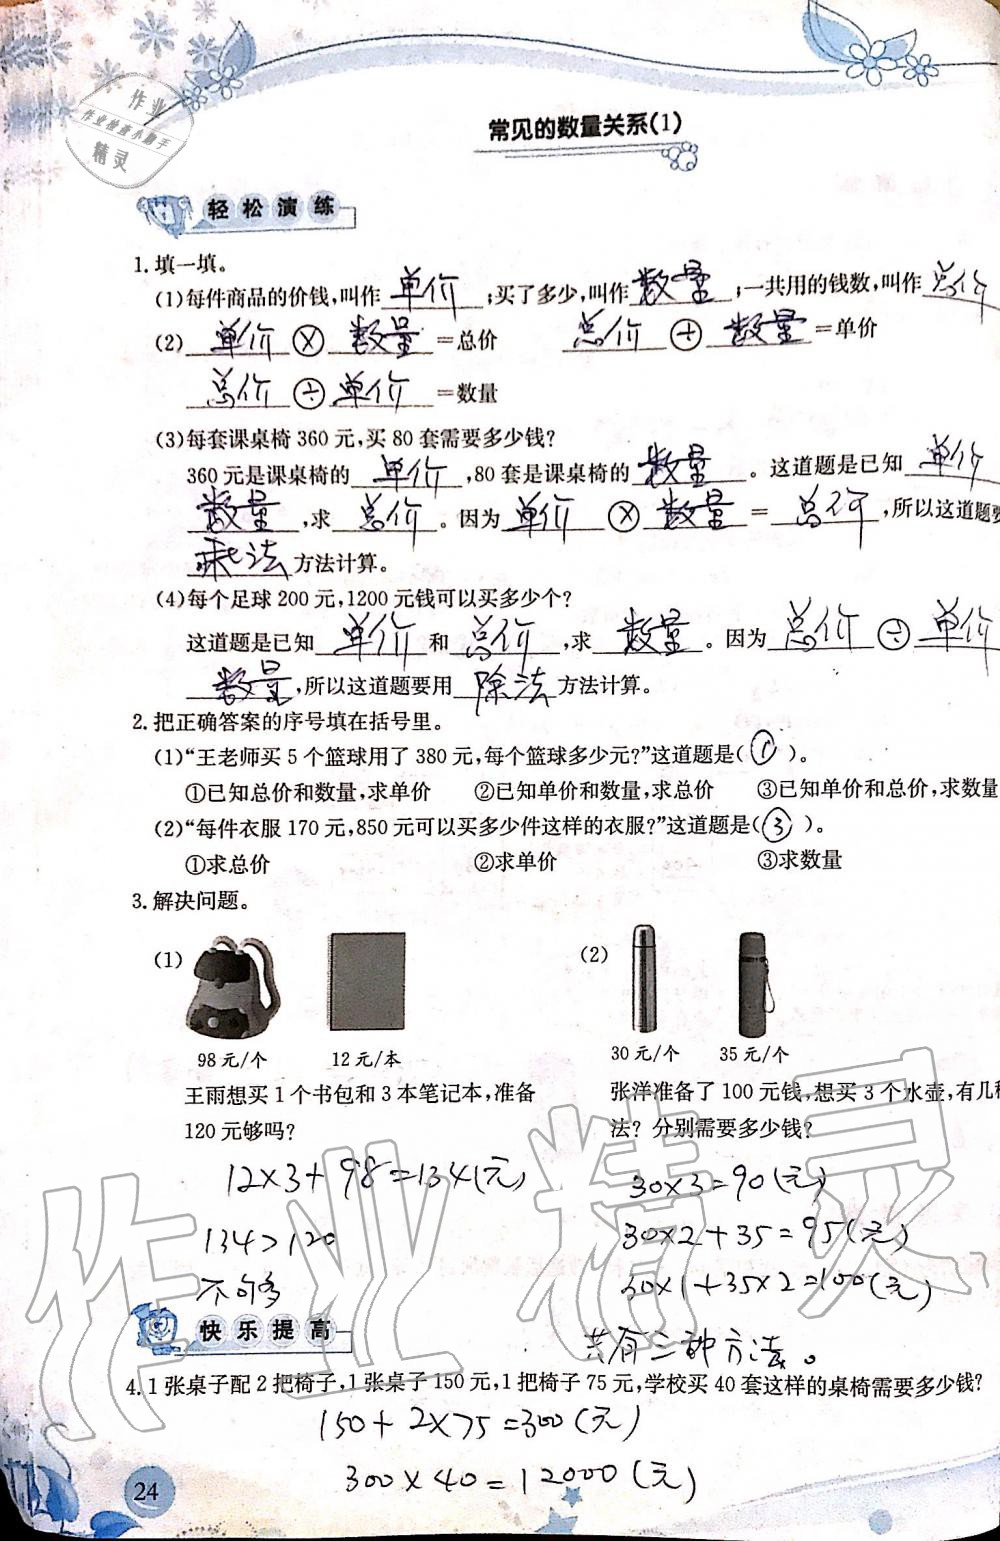 作业
作业检查小助手
精灵
常见的数量关系(1)
轻松演练
1.填一填。
(1)每件商品的价钱,叫作 单价 ;买了多少,叫作 数量 ;一共用的钱数,叫作 总价
(2) 单价 × 数量 =总价 总价 ÷ 数量 =单价
总价 ÷ 单价 =数量
(3)每套课桌椅 360 元,买 80 套需要多少钱?
360 元是课桌椅的 单价 ,80 套是课桌椅的 数量 。这道题是已知 单价
数量 ,求 总价 。因为 单价 × 数量 = 总价 ,所以这道题要
乘法 方法计算。
(4)每个足球 200 元,1200 元钱可以买多少个?
这道题是已知 单价 和 总价 ,求 数量 。因为 总价 ÷ 单价
数量 ,所以这道题要用 除法 方法计算。
2.把正确答案的序号填在括号里。
(1)“王老师买 5 个篮球用了 380 元,每个篮球多少元?”这道题是( ① )。
①已知总价和数量,求单价 ②已知单价和数量,求总价 ③已知单价和总价,求数量
(2)“每件衣服 170 元,850 元可以买多少件这样的衣服?”这道题是( ③ )。
①求总价 ②求单价 ③求数量
3.解决问题。
(1) (2)
98 元/个 12 元/本 30 元/个 35 元/个
王雨想买 1 个书包和 3 本笔记本,准备 张洋准备了 100 元钱,想买 3 个水壶,有几种
120 元够吗? 法? 分别需要多少钱?
12×3+98=134(元) 30×3=90(元)
134>120 30×2+35=95(元)
不够 30×1+35×2=100(元)
共有三种方法。
快乐提高
4.1 张桌子配 2 把椅子,1 张桌子 150 元,1 把椅子 75 元,学校买 40 套这样的桌椅需要多少钱?
150+2×75=300(元)
300×40=12000(元)
24
作业精灵